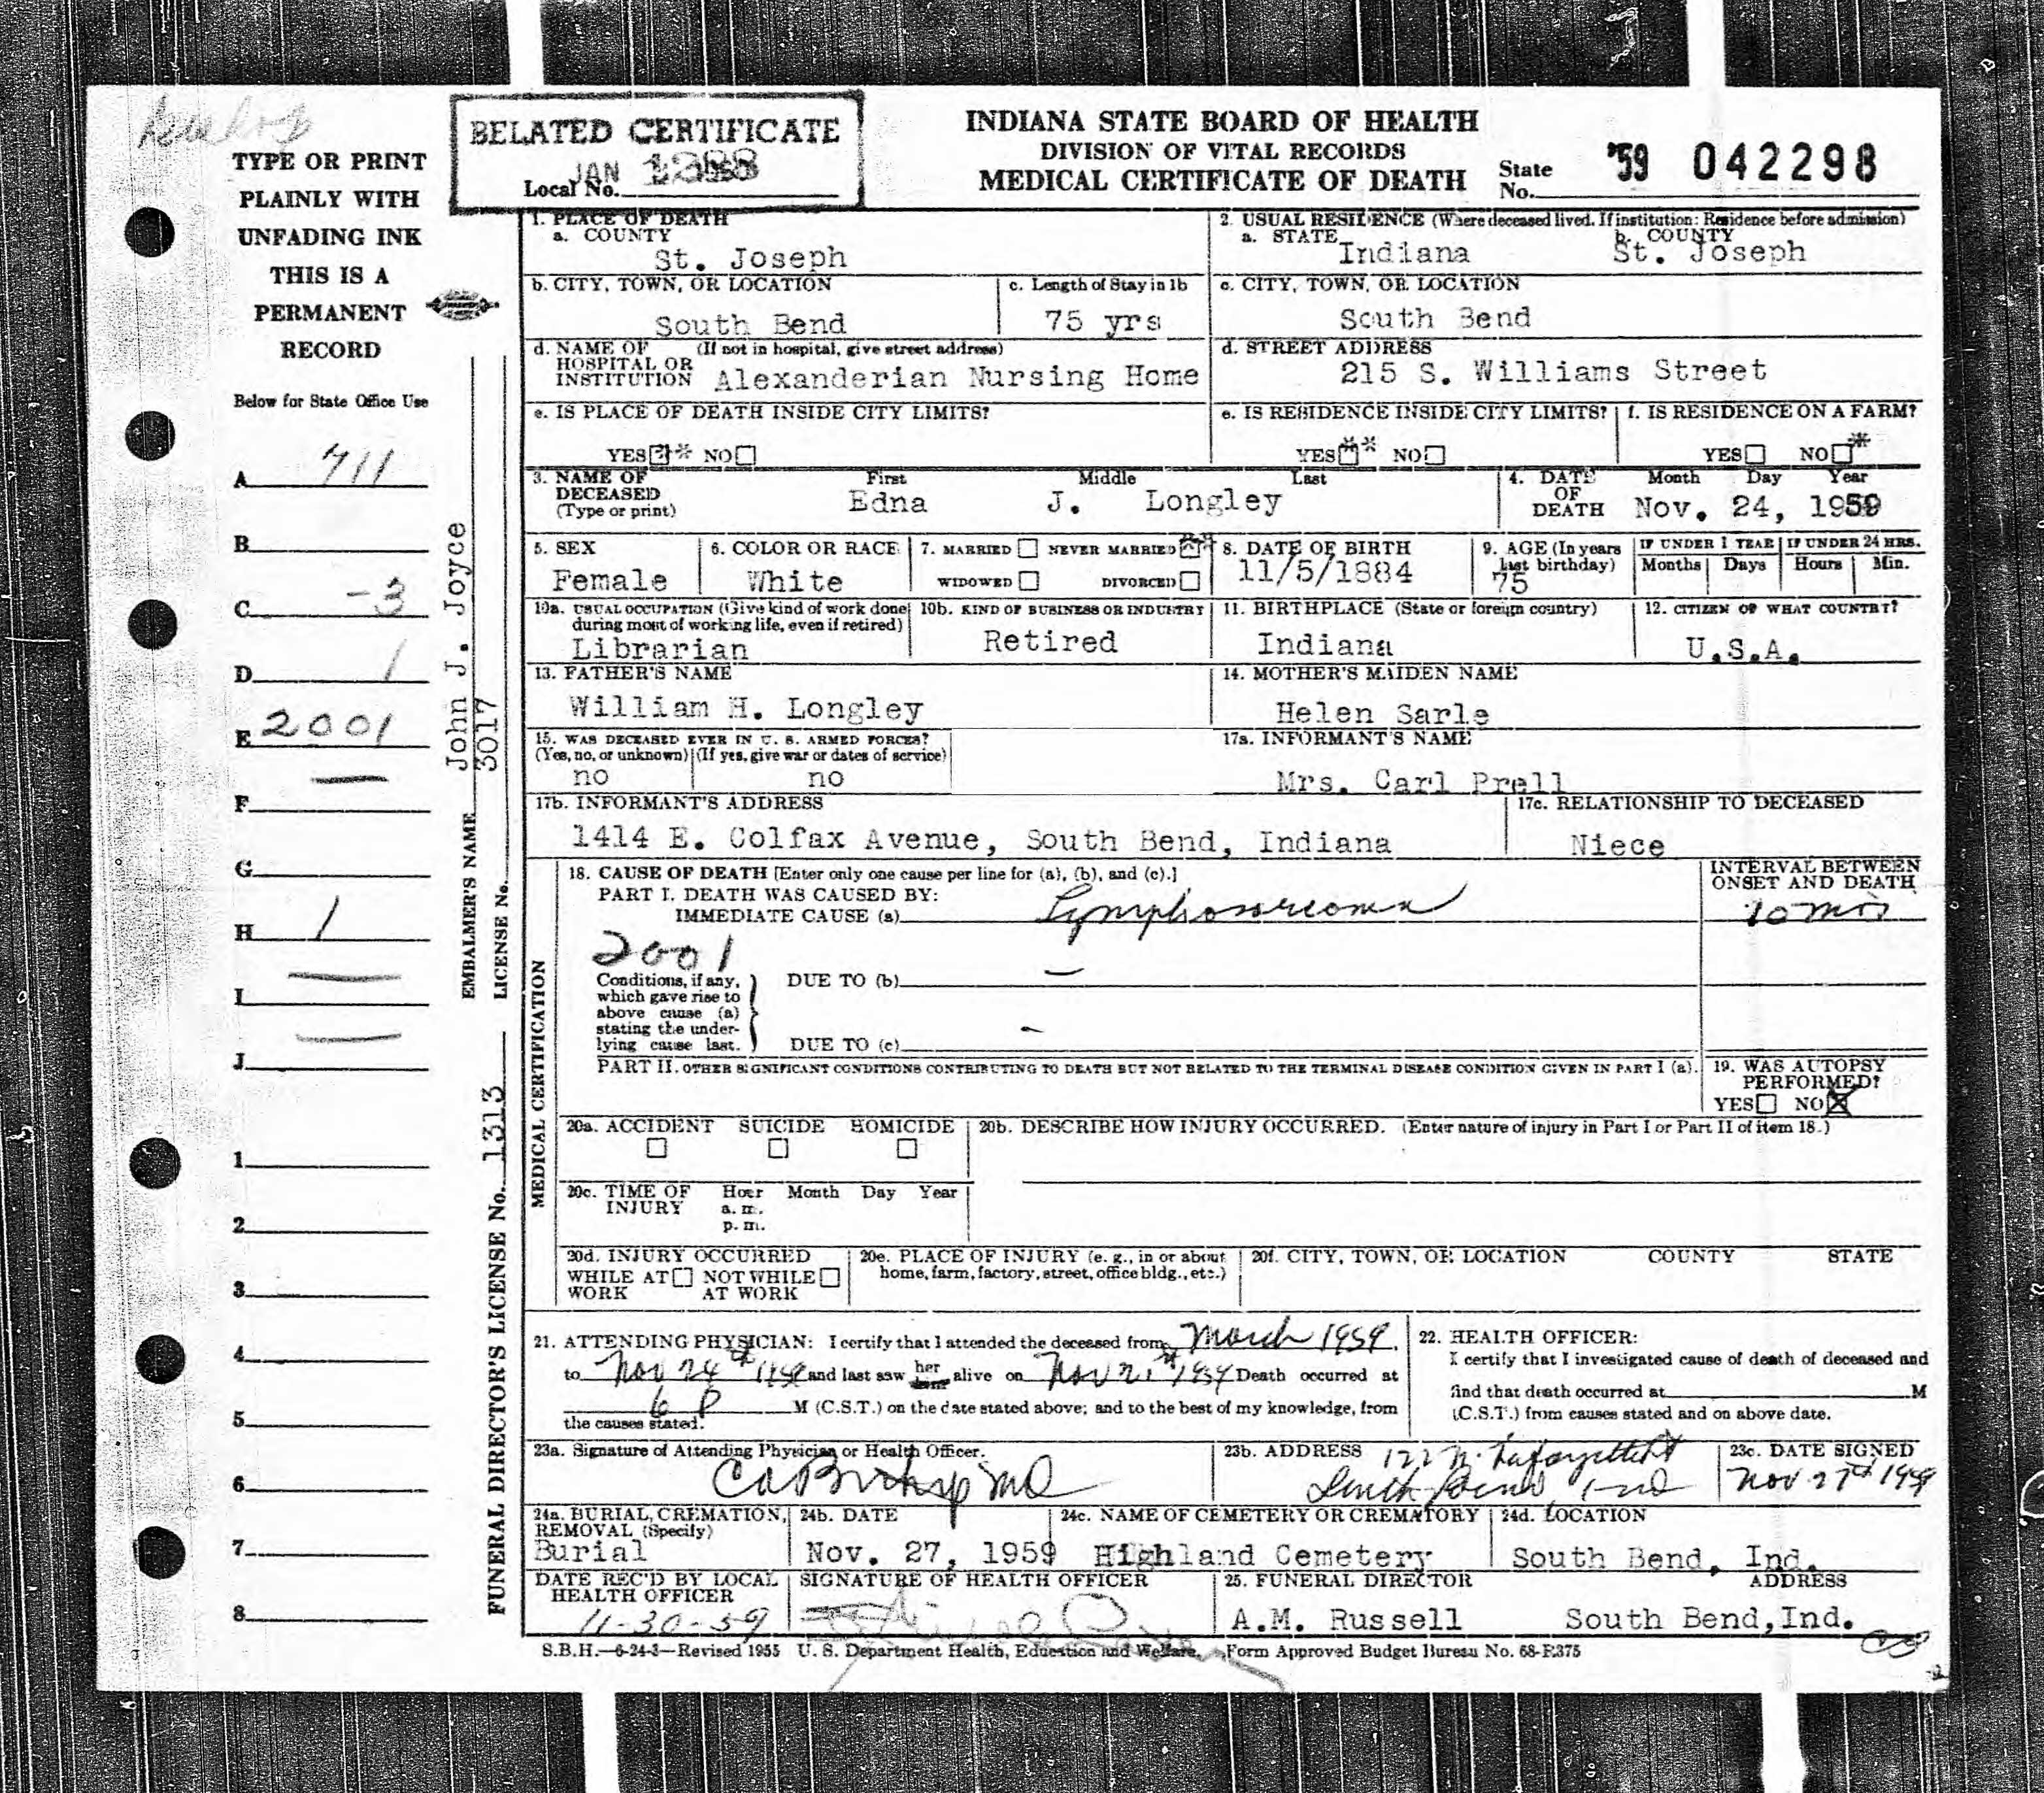 BELATED CERTIFICATE
JAN
Local No.
INDIANA STATE BOARD OF HEALTH
DIVISION OF VITAL RECORDS
MEDICAL CERTIFICATE OF DEATH
State No. '59 042298
TYPE OR PRINT
PLAINLY WITH
UNFADING INK
THIS IS A
PERMANENT
RECORD
Below for State Office Use
A 711
B
C -3
D 1
E 2001
F —
G
H 1
I —
J —
1
2
3
4
5
6
7
8
EMBALMER'S NAME John J. Joyce
LICENSE No. 3017
FUNERAL DIRECTOR'S LICENSE No. 1313
1. PLACE OF DEATH
a. COUNTY
St. Joseph
2. USUAL RESIDENCE (Where deceased lived. If institution: Residence before admission)
a. STATE Indiana b. COUNTY St. Joseph
b. CITY, TOWN, OR LOCATION
South Bend
c. Length of Stay in 1b
75 yrs
c. CITY, TOWN, OR LOCATION
South Bend
d. NAME OF (If not in hospital, give street address)
HOSPITAL OR
INSTITUTION Alexanderian Nursing Home
d. STREET ADDRESS
215 S. Williams Street
e. IS PLACE OF DEATH INSIDE CITY LIMITS?
YES NO
e. IS RESIDENCE INSIDE CITY LIMITS?
YES NO
f. IS RESIDENCE ON A FARM?
YES NO
3. NAME OF DECEASED (Type or print)
First Middle Last
Edna J. Longley
4. DATE OF DEATH
Month Day Year
Nov. 24, 1959
5. SEX
Female
6. COLOR OR RACE
White
7. MARRIED NEVER MARRIED
WIDOWED DIVORCED
8. DATE OF BIRTH
11/5/1884
9. AGE (In years last birthday)
75
IF UNDER 1 YEAR
Months Days
IF UNDER 24 HRS.
Hours Min.
10a. USUAL OCCUPATION (Give kind of work done during most of working life, even if retired)
Librarian
10b. KIND OF BUSINESS OR INDUSTRY
Retired
11. BIRTHPLACE (State or foreign country)
Indiana
12. CITIZEN OF WHAT COUNTRY?
U.S.A.
13. FATHER'S NAME
William H. Longley
14. MOTHER'S MAIDEN NAME
Helen Sarle
15. WAS DECEASED EVER IN U. S. ARMED FORCES?
(Yes, no, or unknown) (If yes, give war or dates of service)
no no
17a. INFORMANT'S NAME
Mrs. Carl Prell
17b. INFORMANT'S ADDRESS
1414 E. Colfax Avenue, South Bend, Indiana
17c. RELATIONSHIP TO DECEASED
Niece
MEDICAL CERTIFICATION
18. CAUSE OF DEATH [Enter only one cause per line for (a), (b), and (c).]
PART I. DEATH WAS CAUSED BY:
IMMEDIATE CAUSE (a) Lymphosarcoma
INTERVAL BETWEEN
ONSET AND DEATH
10 mos
2001
Conditions, if any,
which gave rise to
above cause (a)
stating the under-
lying cause last.
DUE TO (b) —
DUE TO (c) -
PART II. OTHER SIGNIFICANT CONDITIONS CONTRIBUTING TO DEATH BUT NOT RELATED TO THE TERMINAL DISEASE CONDITION GIVEN IN PART I (a).
19. WAS AUTOPSY
PERFORMED?
YES NO X
20a. ACCIDENT SUICIDE HOMICIDE
20b. DESCRIBE HOW INJURY OCCURRED. (Enter nature of injury in Part I or Part II of item 18.)
20c. TIME OF INJURY
Hour Month Day Year
a. m.
p. m.
20d. INJURY OCCURRED
WHILE AT WORK NOT WHILE AT WORK
20e. PLACE OF INJURY (e. g., in or about
home, farm, factory, street, office bldg., etc.)
20f. CITY, TOWN, OR LOCATION COUNTY STATE
21. ATTENDING PHYSICIAN: I certify that I attended the deceased from March 1959,
to Nov 24th 1959 and last saw her him alive on Nov 21st 1959 Death occurred at
6 P M (C.S.T.) on the date stated above; and to the best of my knowledge, from
the causes stated.
22. HEALTH OFFICER:
I certify that I investigated cause of death of deceased and
find that death occurred at M
(C.S.T.) from causes stated and on above date.
23a. Signature of Attending Physician or Health Officer.
CA Bishop MD
23b. ADDRESS 122 N. Lafayette
South Bend Ind
23c. DATE SIGNED
Nov 27th 1959
24a. BURIAL, CREMATION,
REMOVAL (Specify)
Burial
24b. DATE
Nov. 27, 1959
24c. NAME OF CEMETERY OR CREMATORY
Highland Cemetery
24d. LOCATION
South Bend, Ind.
DATE REC'D BY LOCAL
HEALTH OFFICER
11-30-59
SIGNATURE OF HEALTH OFFICER
25. FUNERAL DIRECTOR ADDRESS
A.M. Russell South Bend, Ind.
S.B.H.—6-24-3—Revised 1955 U. S. Department Health, Education and Welfare, Form Approved Budget Bureau No. 68-R375